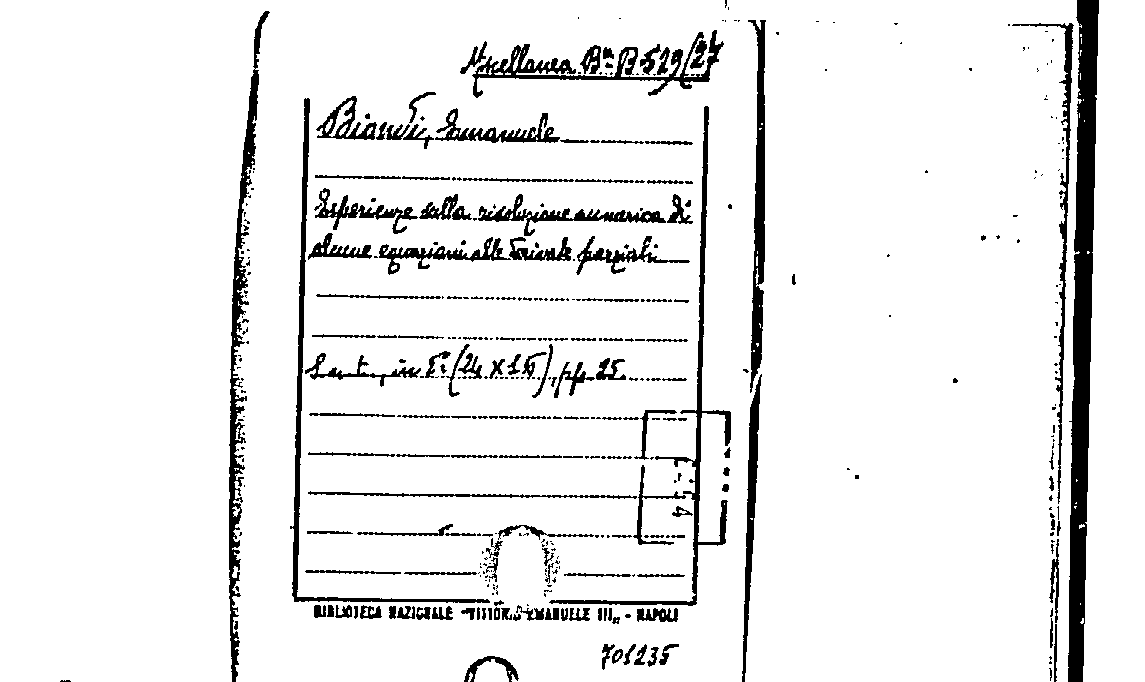 Miscellanea Bª B 529/27
Biondi, Emanuele
Esperienze sulla risoluzione numerica di
alcune equazioni alle derivate parziali
S. n. t., in 8º (24 X 16), pp. 25.
BIBLIOTECA NAZIONALE "VITTORIO EMANUELE III" - NAPOLI
701235